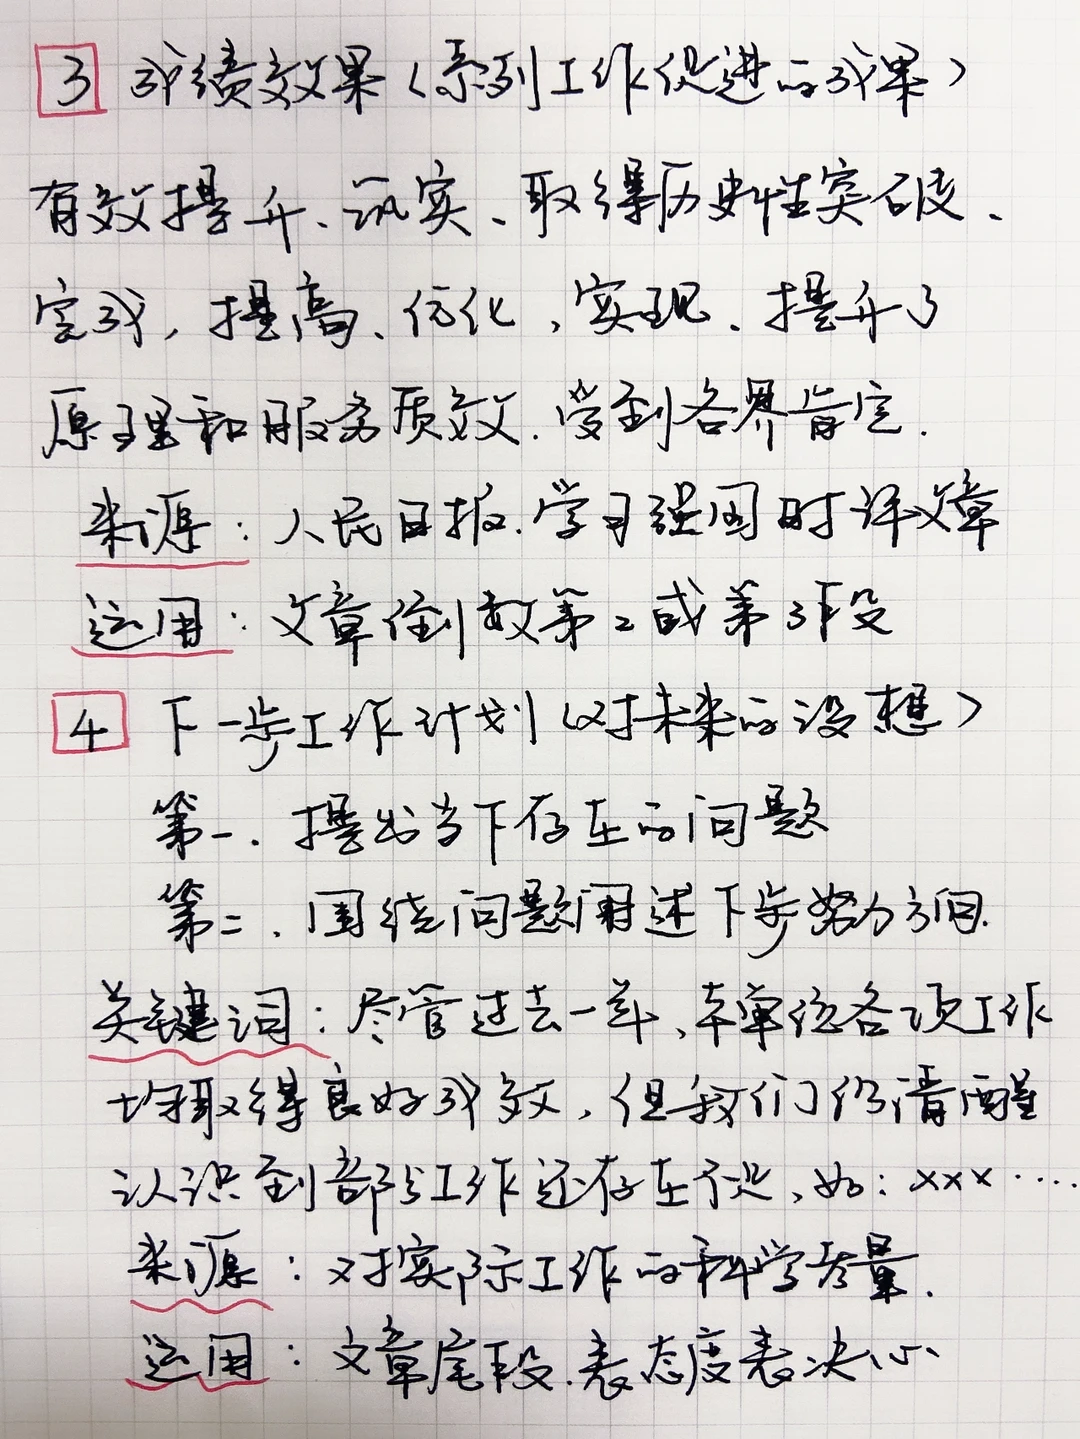 3 成绩效果（系列工作促进的成果）
有效提升、巩实、取得历史性突破、
完成，提高、优化，实现、提升了
原理和服务质效.受到各界肯定.
来源：人民日报.学习强国时评文章
运用：文章倒数第2或第3段
4 下一步工作计划（对未来的设想）
第一.提出当下存在的问题
第二.围绕问题阐述下步努力方向.
关键词：尽管过去一年、本单位各项工作
均取得良好成效，但我们仍清醒
认识到部分工作还存在不足、如：×××·····
来源：对实际工作的科学考量.
运用：文章尾段.表态度表决心